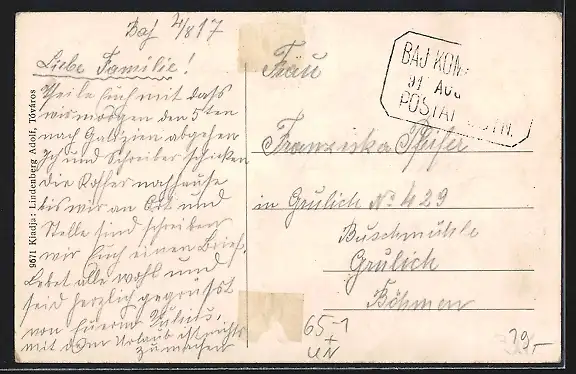 Baj 4/8 17
Liebe Familie!
Theile Euch mit dass
wir morgen den 5ten
nach Galizien abgehen
Ich und Schreiber schicken
die Koffer nachhause
bis wir an Ort und
Stelle sind schreiben
wir Euch einen Brief.
Lebet alle wohl und
seid herzlich gegrüsst
von Euern
mit dem Urlaub ist nichts
zumachen
9671 Kiadja: Lindenberg Adolf, Tóváros
BAJ KOM
31 AUG
POSTAI
Frau
Franziska Pfeifer
in Grulich No 429
Buschmühle
Grulich
Böhmen
65-1
+
UN
19-